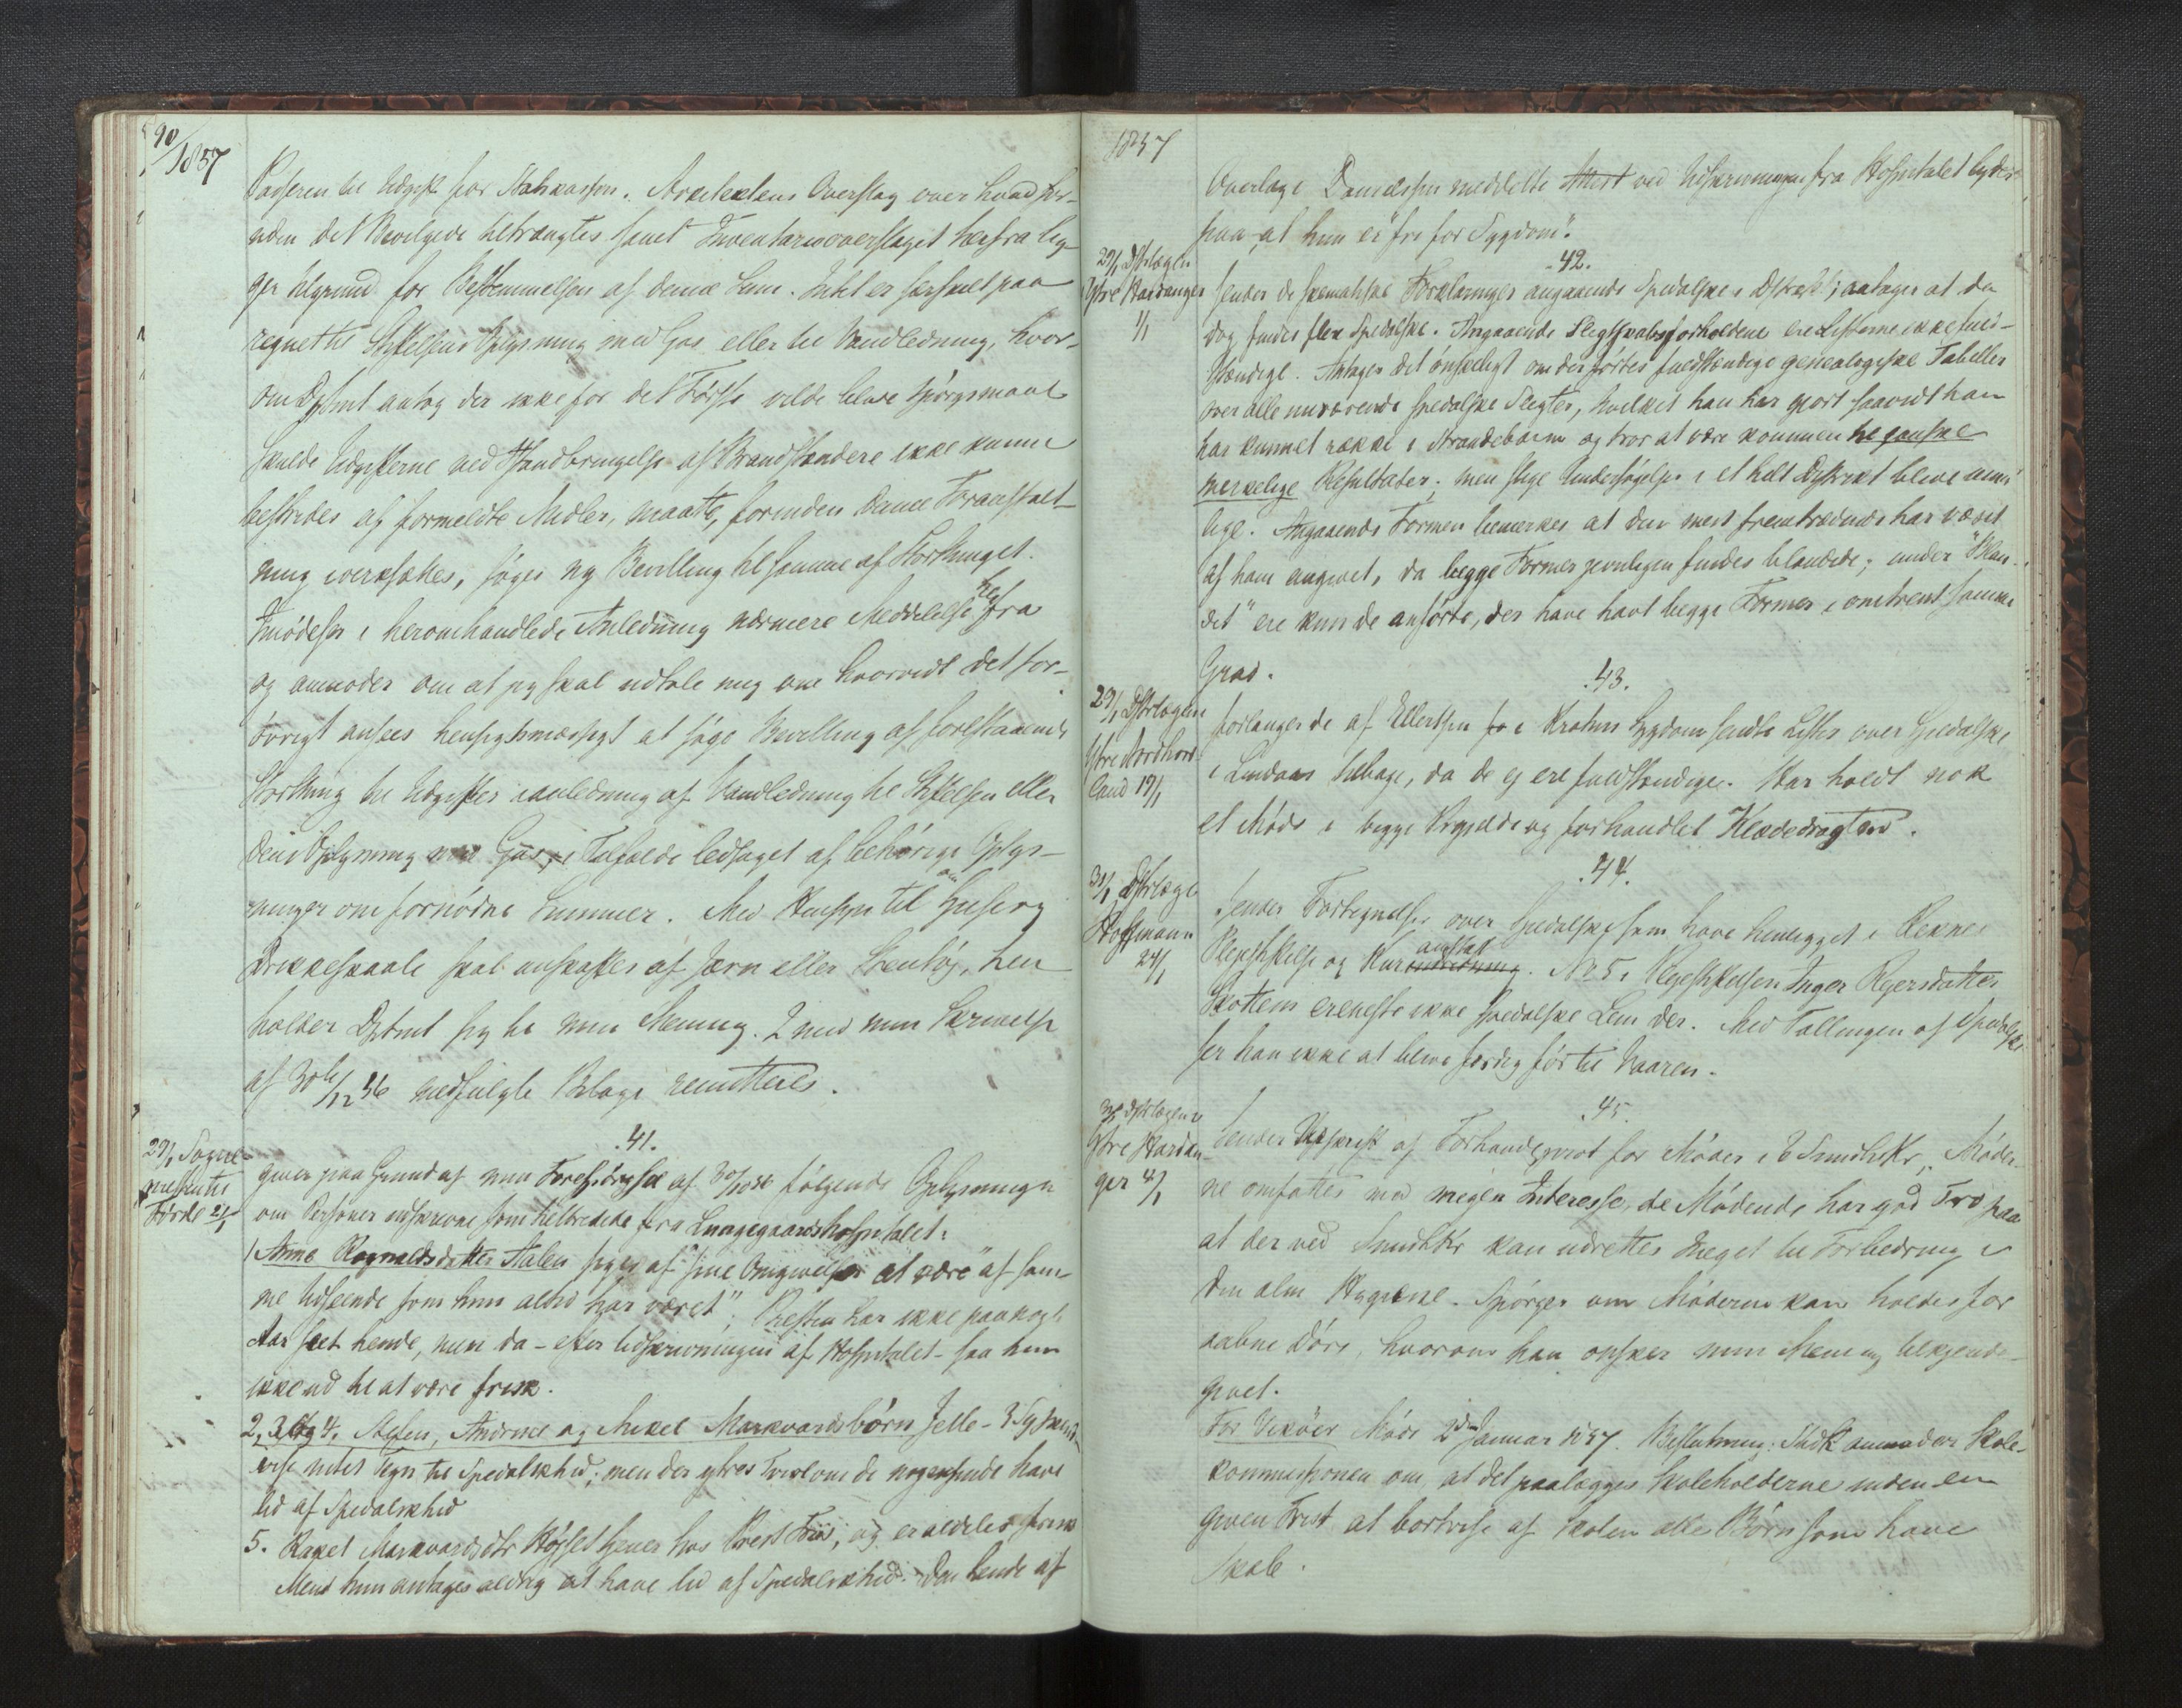 90/1857
Passeren til Udgift for Statskassen. Arkitektens Overslag over hvad for-
uden det Bevilgede tiltrængtes samt Inventarieoverslaget herfra lig-
ger tilgrund for Bestemmelsen af denne Sum. Intet er særskilt paa
regnet til Stiftelsens Oplysning med Gas eller til Vandledning, hvor-
om Dptmt antog der ikke for det Første vilde blive Spørgsmaal
skulde Udgifterne ved Istandbringelse af Brandstandere ikke kunne
bestrides af formeldte Midler, maatte, forinden denne Foranstalt-
ning iverksættes, søges ny Bevilling til samme af Storthinget.
Imødeser i heromhandlede Anledning nærmere Meddelelse herfra
og anmoder om at jeg skal udtale mig om hvorvidt det for-
øvrigt ansees hensigtsmæssigt at søge Bevilling af forestaaende
Storthing til Udgifter i anledning af Vandledning til Stiftelsen eller
dens Oplysning med Gas, i Tilfælde ledsaget af behørige Oplys-
ninger om fornødne Summer. Med Hensyn til om
Drikkeskaale skal anskaffes af Jern eller Stentøj, hen
holder Dptmt sig til min Mening. 2 med min Skrivelse
af 30te/12 56 medfulgte Bilage remitteres.
.41.
29/1 Sogne-
presten til
Førde 21/1
giver paa Grund af min Forespørgsel af 30/10 56 følgende Oplysninger
om Personer udskrevne som helbredede fra Lungegaardshospitalet:
1 Anna Ragnaldsdatter Aalen siges af sine Omgivelser "at være af sam-
me Udseende som hun altid har været"; Presten har ikke paa nogle
Aar seet hende, men da - efter Udskrivningen af Hospitalet - saa hun
ikke ud til at være frisk.
2, 3 og 4, Andrine og Mikel Markvardsbørn Jelle - 3 Sydskend
vise intet Tegn til Spedalskhed; men der ytres Tvivl om de nogensinde have
lid af Spedalskhed
5. Rakel Markvardsdtr tjener hos Prest Friis, og er aldeles frisk
Mend hun antages aldrig at have lid af Spedalskhed. Den hende af
1857
Overlæge Danielssen meddelte Attest ved Udskrivningen fra Hospitalet lyder
paa at hun er "fri for Sygdom".
.42.
29/1 Dstrlægen
Ytre Hardanger
1/1
sender de skematiske Forklaringer angaaende Spedalske i Dstriktet; antager at der
dog findes flere Spedalske. Angaaende Slegtskabsforholdene ere Listerne ikke fuld-
stændige. Antager det ønskeligt om der førtes fuldstændige genealogiske Tabeller
over alle nuværende spedalske Slegter, hvilket han har gjort saavidt han
har kunnet række i Strandebarm og tror at være kommen til ganske
merkelige Resultater; men slige Undersøgelser i et helt Distrikt blive umu-
lige. Angaaende Formen bemerkes at den mest fremtrædende har været
af ham angivet, da begge Former jevnligen findes blandede; under "Blan-
det" ere kun de anførte, der have havt begge Former i omtrent samme
Grad.
.43.
29/1 Dstrlægen
Ytre Nordhord-
land 19/1
forlanger de af Ellertsen i Krohns Sygdom sendte Lister over Spedalske
i Lindaas tilbage, da de ej ere fuldstændige. Har holdt nok
et Møde i begge Prgjelde og forhandlet Klædedragten.
.44.
31/1 Dstrlæge
Hoffmann
24/1
sender Fortegnelse over Spedalske som have henligget i Reknes
Plejestiftelse og Kuranstalt. No 5 i Plejestiftelsen Inger Rejersdatter
Skottem er eneste ikke spedalske Lem der. Med Tællingen af Spedalske
ser han ikke at blive færdig før til Vaaren.
.45.
31/1 Dstrlægen
Ytre Hardan-
ger 4/1
sender Udskrift af Forhandlprot for Møder i 2 Sundhdkr. Møder-
ne omfattes med megen Interesse, de Mødende har god Tro paa
at der ved Sundhdkr kan udrettes meget til Forbedring i
den alm Hygiene. Spørger om Møderne kan holdes for
aabne Døre, hvorom han ønsker min Mening tilkjende-
givet.
For Vikøer Møde 2den Januar 1857. Beslutning: Shdk anmoder Skole-
kommissionen om, at det paalægges Skoleholderne inden en
given Frist at bortvise af Skolen alle Børn som have
Skab.